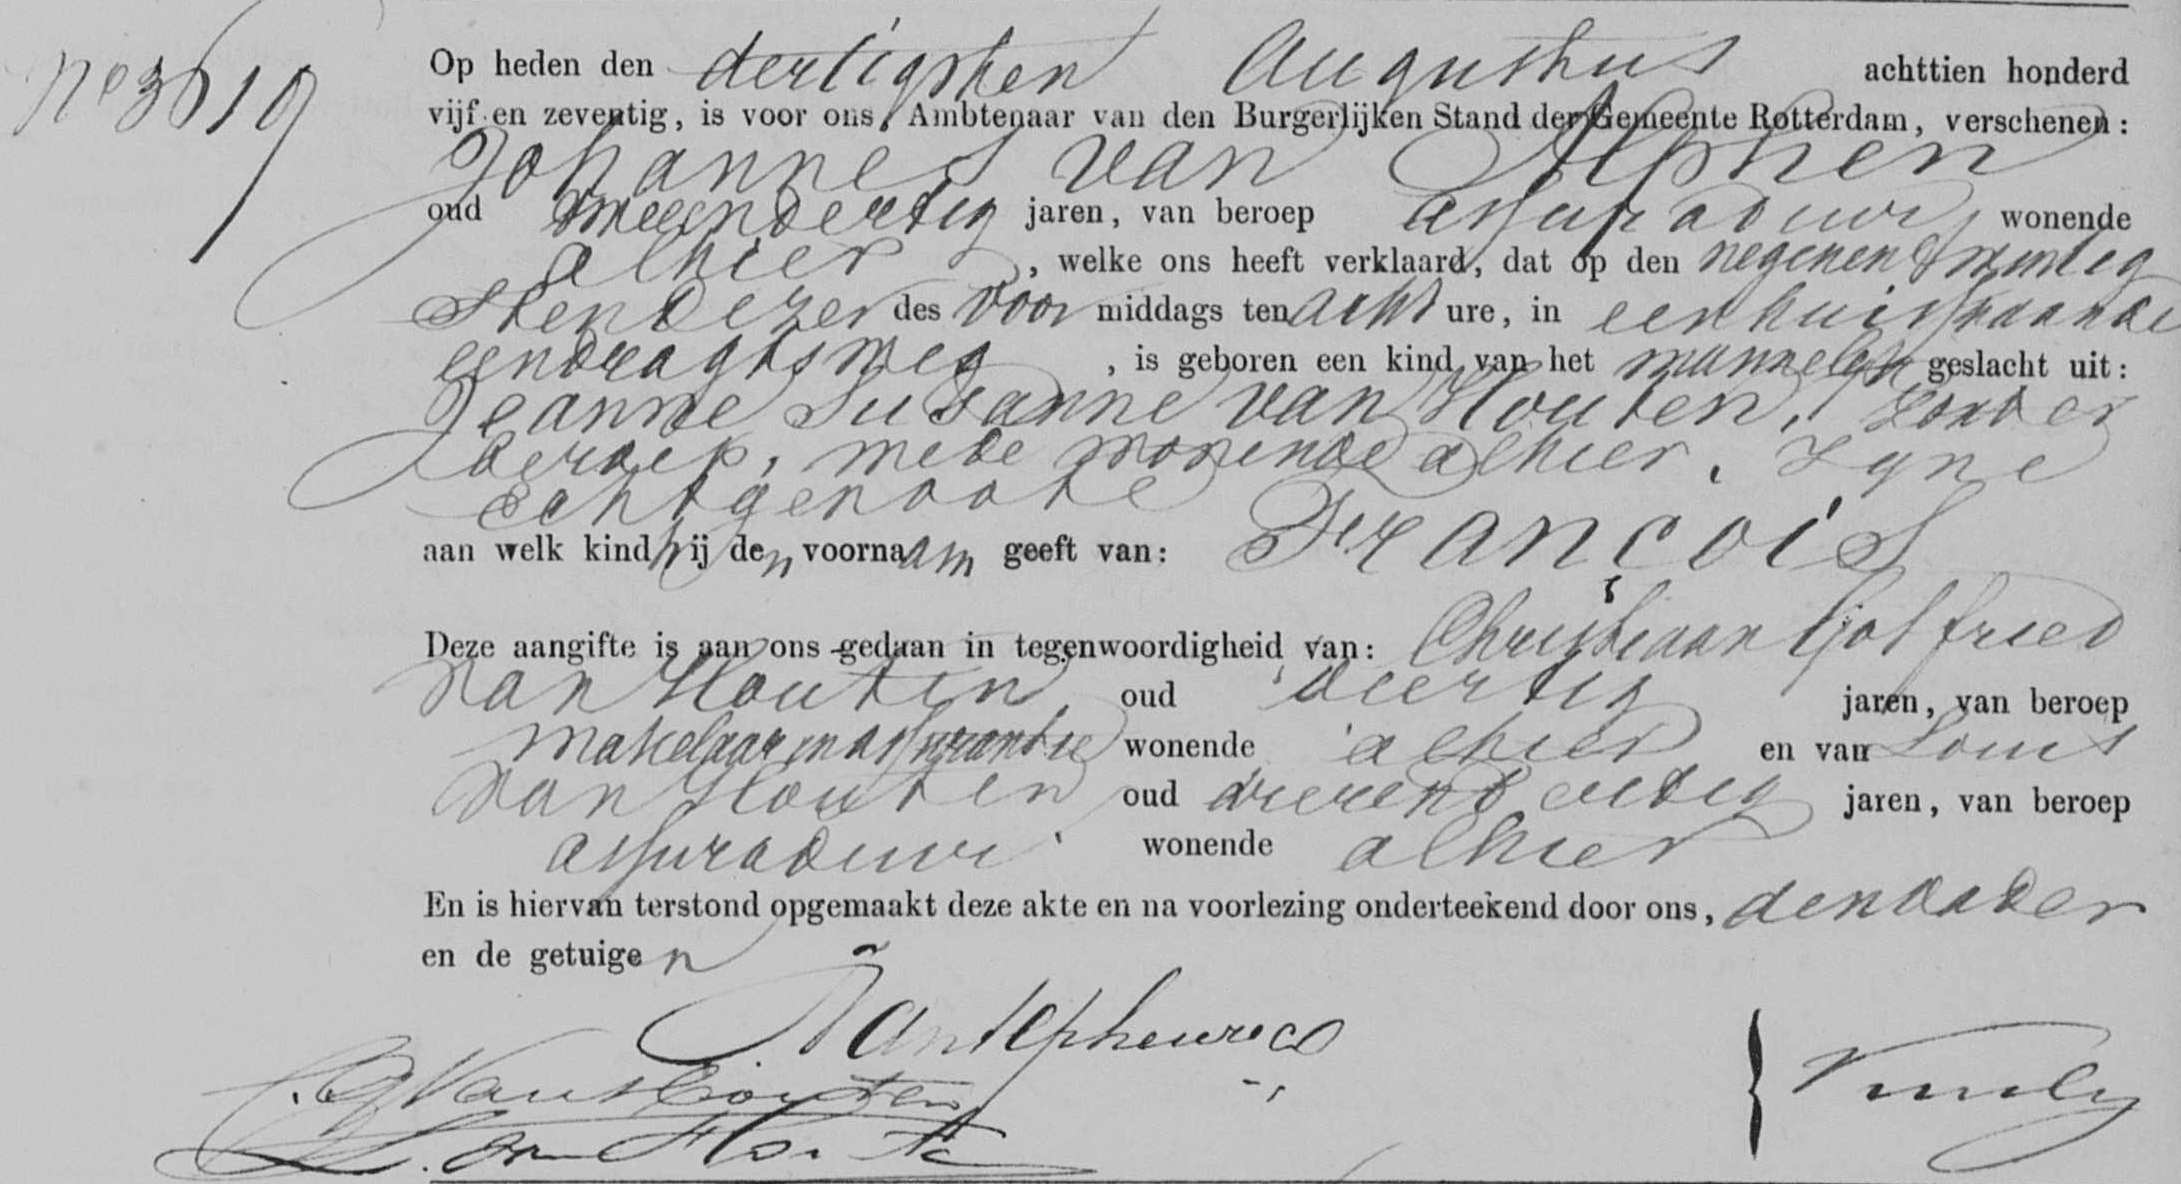 No 3619
Op heden den dertigsten Augustus achttien honderd
vijf en zeventig, is voor ons, Ambtenaar van den Burgerlijken Stand der Gemeente Rotterdam, verschenen:
Johannes van Alphen
oud tweeendertig jaren, van beroep assuradeur, wonende
alhier, welke ons heeft verklaard, dat op den negenentwintig
sten dezer des voor middags ten acht ure, in een huis staande
eendragtsweg, is geboren een kind van het mannelijk geslacht uit:
Jeanne Susanne van Houten, zonder
beroep, mede wonende alhier, zyne
echtgenoote
aan welk kind hij den voornaam geeft van: François
Deze aangifte is aan ons gedaan in tegenwoordigheid van: Christiaan Gotfried
van Houten oud veertig jaren, van beroep
makelaar in assurantie wonende alhier en van Louis
van Houten oud drieendertig jaren, van beroep
assuradeur wonende alhier
En is hiervan terstond opgemaakt deze akte en na voorlezing onderteekend door ons, den vader
en de getuigen
C. G. Van Houten
L. van Houten